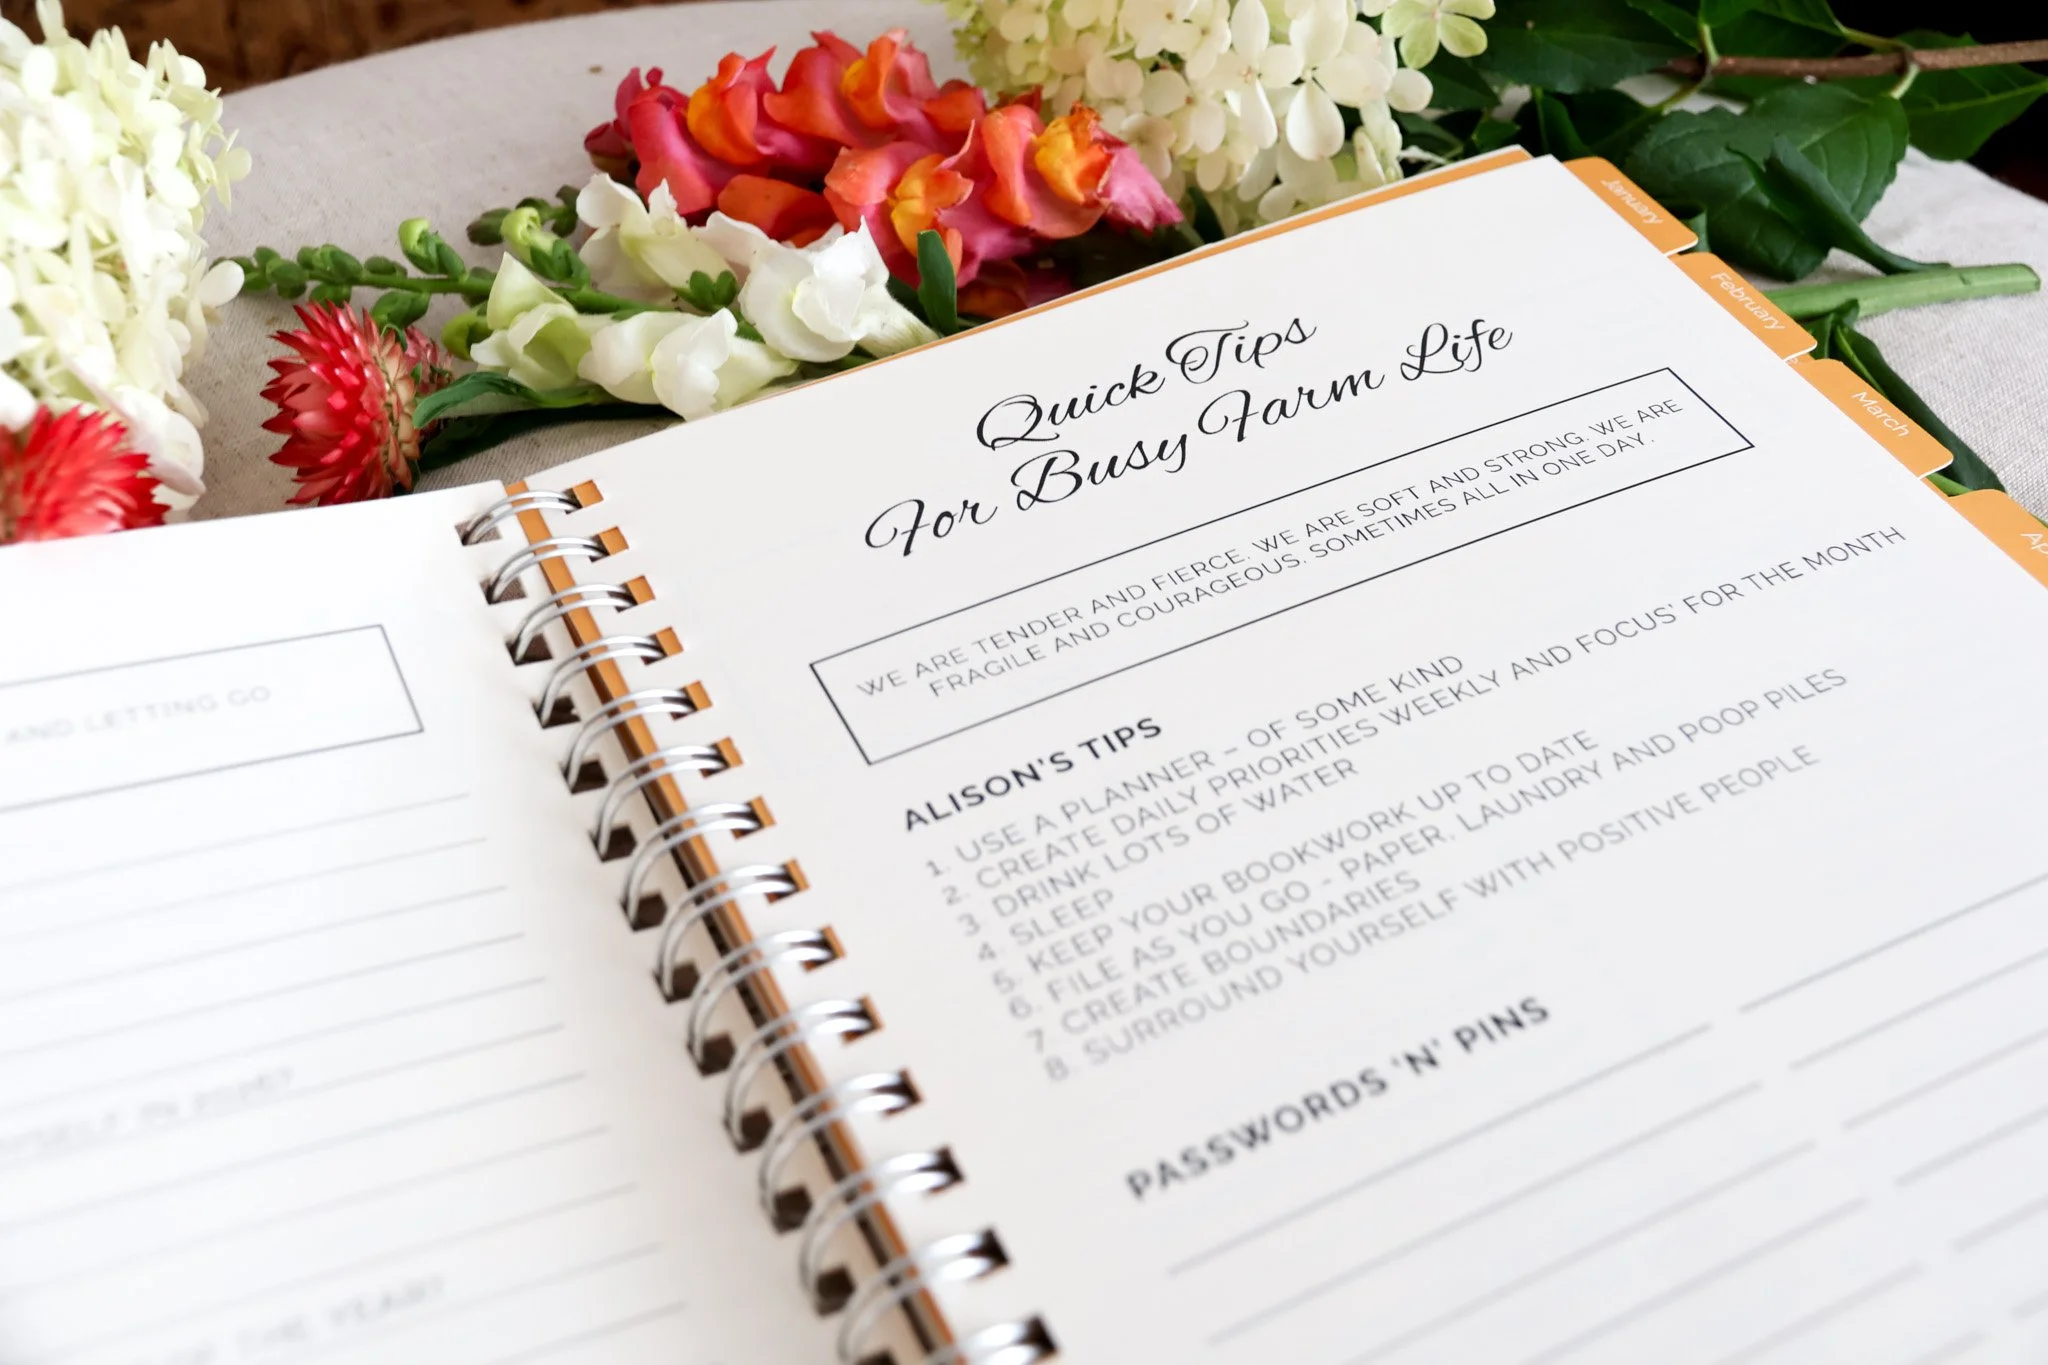 AND LETTING GO
Quick Tips
For Busy Farm Life
WE ARE TENDER AND FIERCE. WE ARE SOFT AND STRONG. WE ARE
FRAGILE AND COURAGEOUS. SOMETIMES ALL IN ONE DAY.
ALISON'S TIPS
1. USE A PLANNER – OF SOME KIND
2. CREATE DAILY PRIORITIES WEEKLY AND FOCUS' FOR THE MONTH
3. DRINK LOTS OF WATER
4. SLEEP
5. KEEP YOUR BOOKWORK UP TO DATE
6. FILE AS YOU GO - PAPER, LAUNDRY AND POOP PILES
7. CREATE BOUNDARIES
8. SURROUND YOURSELF WITH POSITIVE PEOPLE
PASSWORDS 'N' PINS
January
February
March